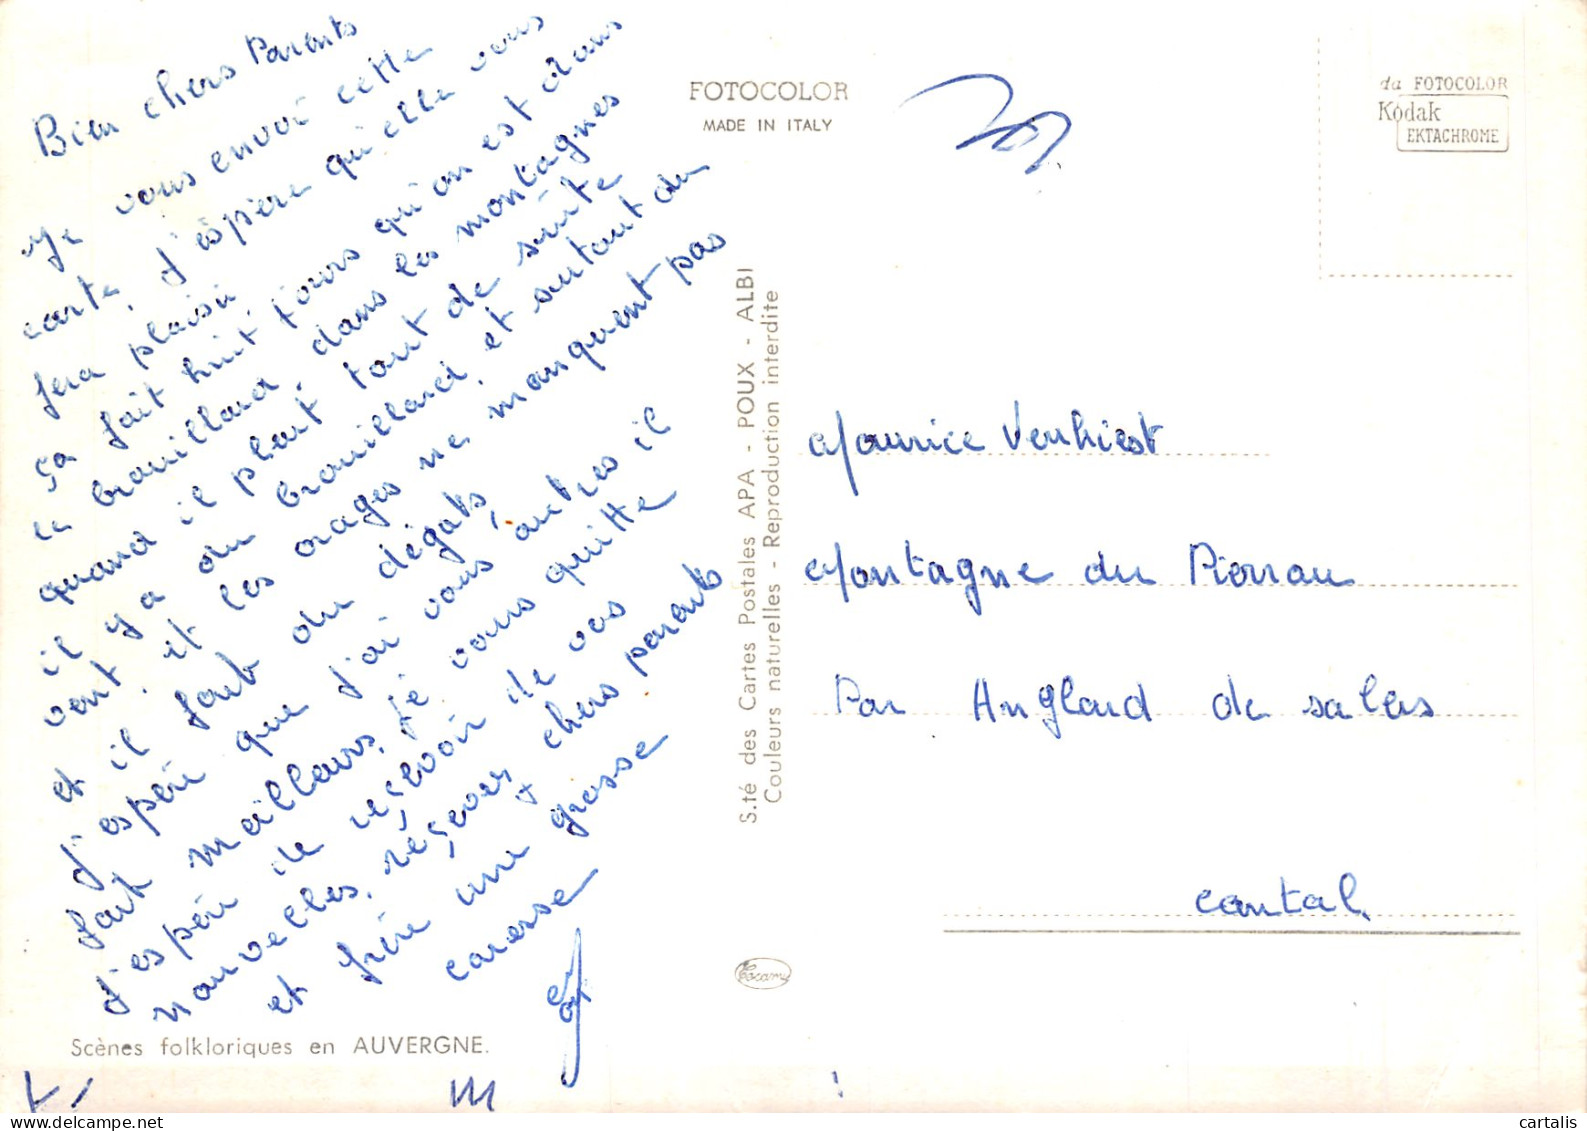 Bien chers Parents
Je vous envoi cette
carte, j'éspère qu'elle vous
fera plaisir,
ça fait huit jours qu'on est dans
le brouillard, dans les montagnes
quand il pleut tout de suite
il y a du brouillard, et surtout du
vent, et les orages ne manquent pas
et il font du dégats,
j'espère que j'ai vous autres il
fait meilleurs, je vous quitte
j'espère de reçevoir de vos
nouvelles, réçevez, chers parents
et frère une grosse
caresse
FOTOCOLOR
MADE IN ITALY
da FOTOCOLOR
Kodak
EKTACHROME
S.té des Cartes Postales APA - POUX - ALBI
Couleurs naturelles - Reproduction interdite
Maurice Verhiest
Montagne du
Par Anglard de salers
cantal
Scènes folkloriques en AUVERGNE.
cartalis